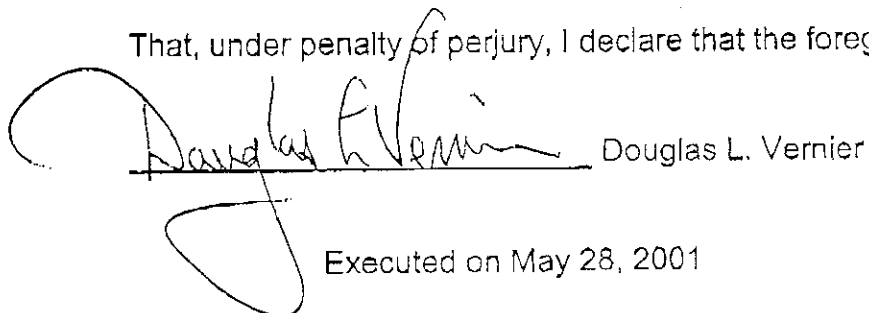 That, under penalty of perjury, I declare that the foreg
Douglas L. Vernier Douglas L. Vernier
Executed on May 28, 2001